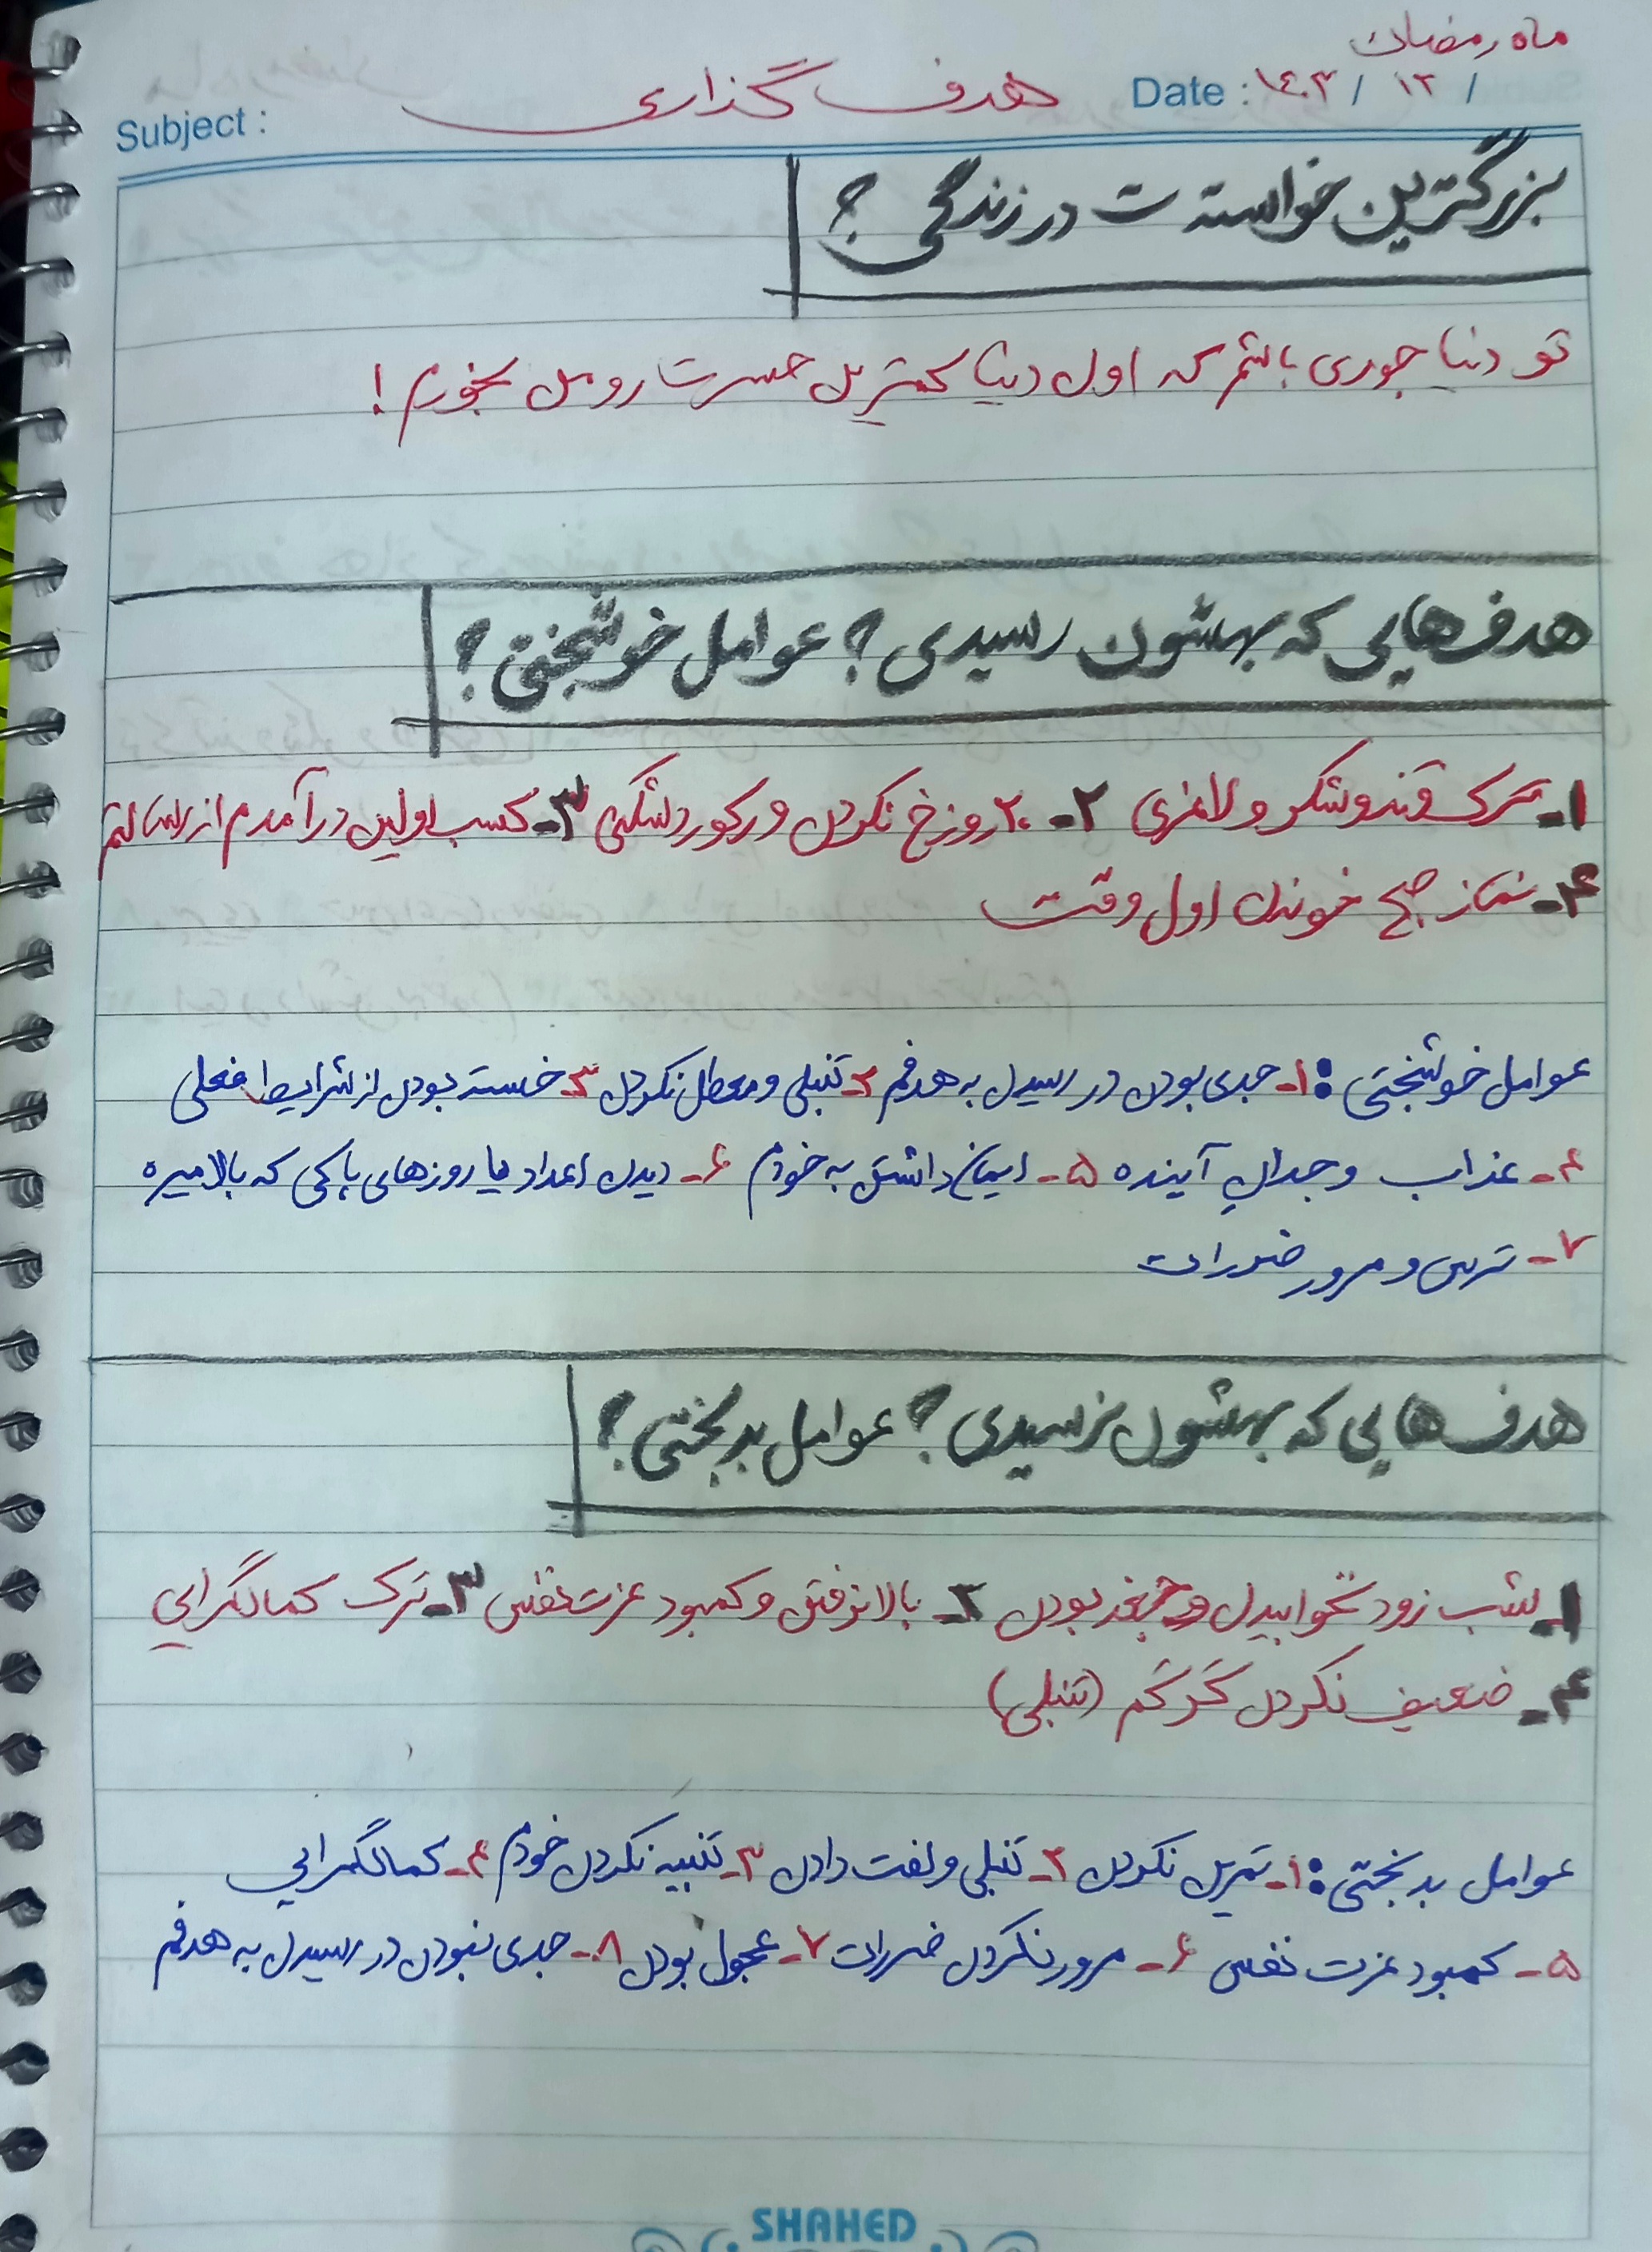 ماه رمضان
Date : ۱۴۰۳ / ۱۲ /
هدف گذاری
Subject :
بزرگترین خواسته ت در زندگی ؟
تو دنیا جوری باشم که اون دنیا کمترین حسرت رو بخورم !
هدف هایی که بهشون رسیدی ؟ عوامل خوشبختی ؟
۱- ترک قندوشکر و لاغری ۲- ۲۰ روز خ نکردن و رکورد شکنی ۳- کسب اولین درآمدم از
۴- نماز صبح خوندن اول وقت
عوامل خوشبختی : ۱- جدی بودن در رسیدن به هدفم ۲- تنبلی و معطل نکردن ۳- خسته بودن از شرایط فعلی
۴- عذاب وجدانِ آینده ۵- ایمان داشتن به خودم ۶- دیدن اعداد یا روزهای پاکی که بالا میره
۷- ترس و مرور ضررات
هدف هایی که بهشون نرسیدی ؟ عوامل بدبختی ؟
۱- شب زود نخوابیدن و جغد بودن ۲- بالا نرفتن و کمبود عزت نفس ۳- ترک کمالگرایی
۴- ضعیف نکردن (تنبلی)
عوامل بدبختی : ۱- تمرین نکردن ۲- تنبلی و لفت دادن ۳- تنبیه نکردن خودم ۴- کمالگرایی
۵- کمبود عزت نفس ۶- مرور نکردن ضررات ۷- عجول بودن ۸- جدی نبودن در رسیدن به هدفم
SHAHED